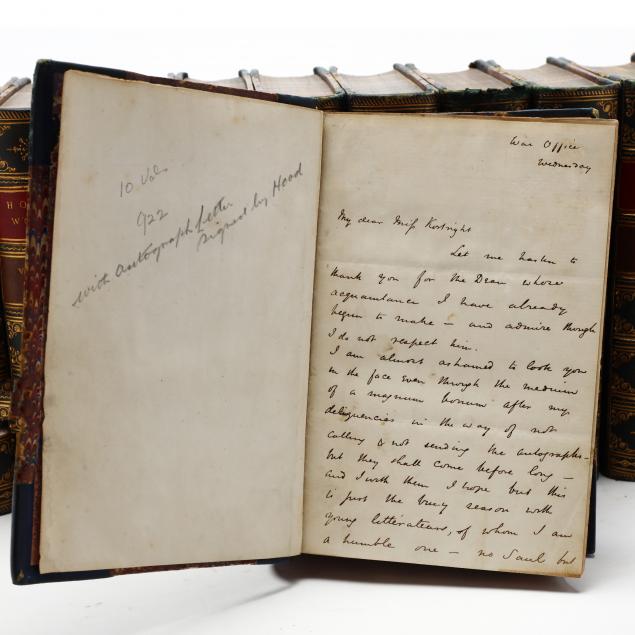 10 Vols
922
with Autograph Letter
signed by Hood
War Office
Wednesday
My dear Miss Kortright
Let me hasten to
thank you for the Dean whose
acquaintance I have already
begun to make – and admire though
I do not respect him.
I am almost ashamed to look you
in the face even through the medium
of a magnum bonum after my
delinquencies in the way of not
calling & not sending the autographs –
but they shall come before long –
and I with them I hope but this
is just the busy season with
young littérateurs, of whom I am
a humble one – no Saul but
HO
WO